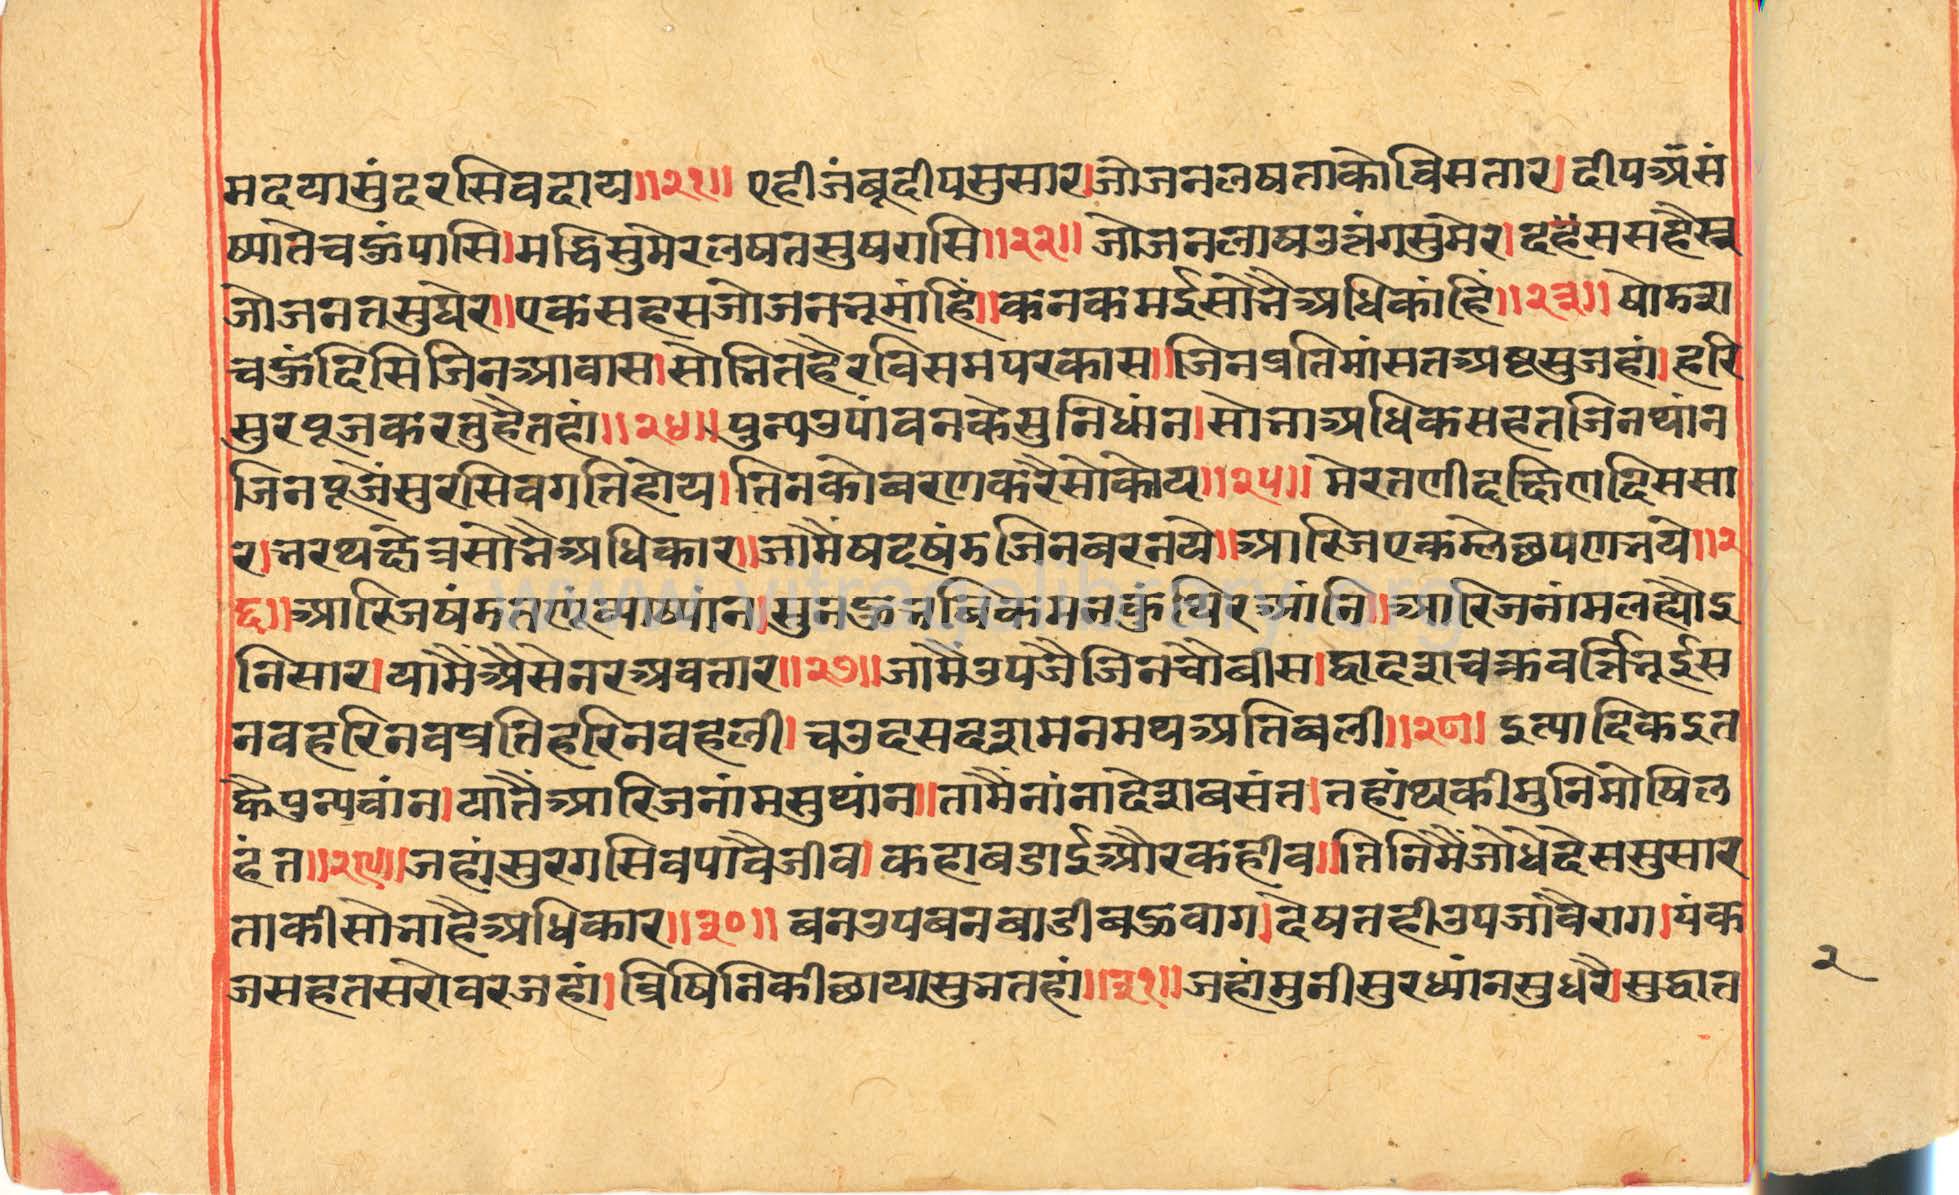 मदयासुंदरसिवदाय॥२१॥ एहीजंबूदीपसुसार।जोजनलषताकोविसतार।दीपअसं
ष्यातैचऊंपासि।मद्धिसुमेरलषतसुषरासि॥२२॥ जोजनलाषउत्तंगसुमेर।दहंससहैस्त्र
जोजनतसुघेर॥एकसहसजोजनभूमांहिं॥कनकमईसोभैअधिकांहिं॥२३॥ षोडश
चऊंदिसिजिनआवास।सोभितहैरविसमपरकास॥जिनप्रतिमांसतअष्टसुजहां।हरि
सुरपूजकरतुहैतहां॥२४॥ पुन्यउपांवनकेसुनिधांन।सोभाअधिकसहतजिनथांन
जिनपूजैंसुरसिवगतिहोय।तिनकोबरणकरैसोकोय॥२५॥ मेरतणीदछिणदिससा
र।भरथछेत्रसोभैअधिकार॥जामैंषटषंडजिनबरनये॥आरिजएकम्लेछपणभये॥२
६॥आरिजषंडतणंव्याष्यांन।सुनऊभविकमनकुंथिरआंनि॥आरिजनांमलह्यौइ
निसार।यामैंअैसेनरअवतार॥२७॥जामैंउपजैजिनचौबीस।द्वादशचक्रवर्त्तिभूईस
नवहरिनवप्रतिहरिनवहली।चउदसदशमनमथअतिबली॥२८॥ इत्यादिकइत
कैपुन्यवांन।यातैंआरिजनांमसुथांन॥तामैंनांनादेशबसंत।तहांथकीमुनिमोषिल
हंत॥२९॥जहांसुरगसिवपावैजीव।कहाबडाईऔरकहीव॥तिनिमैंजोधेदेससुसार
ताकीसोभाहैअधिकार॥३०॥ बनउपबनबाडीबऊवाग।देषतहीउपजांवैराग।पंक
जसहतसरोवरजहां।व्रिषिनिकीछायासुभतहां॥३१॥जहांमुनीसुरध्यांनसुधरै।सुद्धात
२
www.vitragelibrary.org